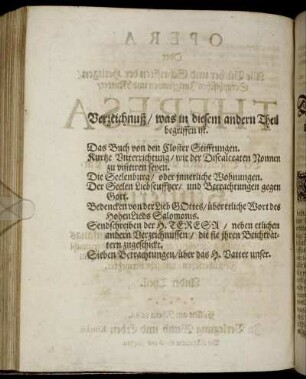 Verzeichnuß/ was in diesem andern Theil
begriffen ist.
Das Buch von den Closter Stifftungen.
Kurtze Unterrichtung/ wie der Discalceaten Nonnen
zu visitiren seyen.
Die Seelenburg/ oder innerliche Wohnungen.
Der Seelen Liebseufftzer/ und Betrachtungen gegen
Gott.
Bedencken von der Lieb GOttes/ über etliche Wort des
Hohen Lieds Salomonis.
Sendschreiben der H. TERESA/ neben etlichen
andern Verzeichnussen/ die sie ihren Beichtvät-
tern zugeschickt.
Sieben Betrachtungen/ über das H. Vatter unser.